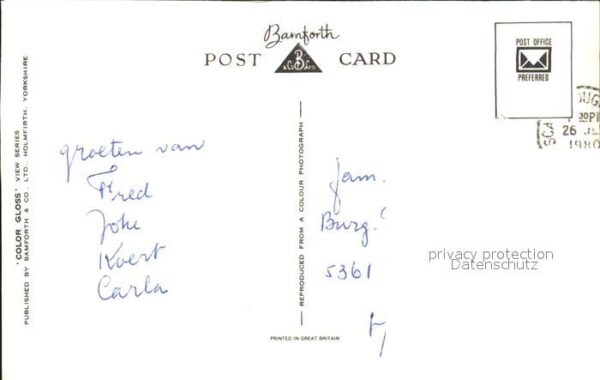 Bamforth
POST CARD
B
& Co Ltd
POST OFFICE
PREFERRED
26
1980
groeten van
Fred
Joke
Koert
Carla
fam.
Burg.
5361
privacy protection
Datenschutz
"COLOR GLOSS" VIEW SERIES
PUBLISHED BY BAMFORTH & CO., LTD. HOLMFIRTH, YORKSHIRE
REPRODUCED FROM A COLOUR PHOTOGRAPH
PRINTED IN GREAT BRITAIN